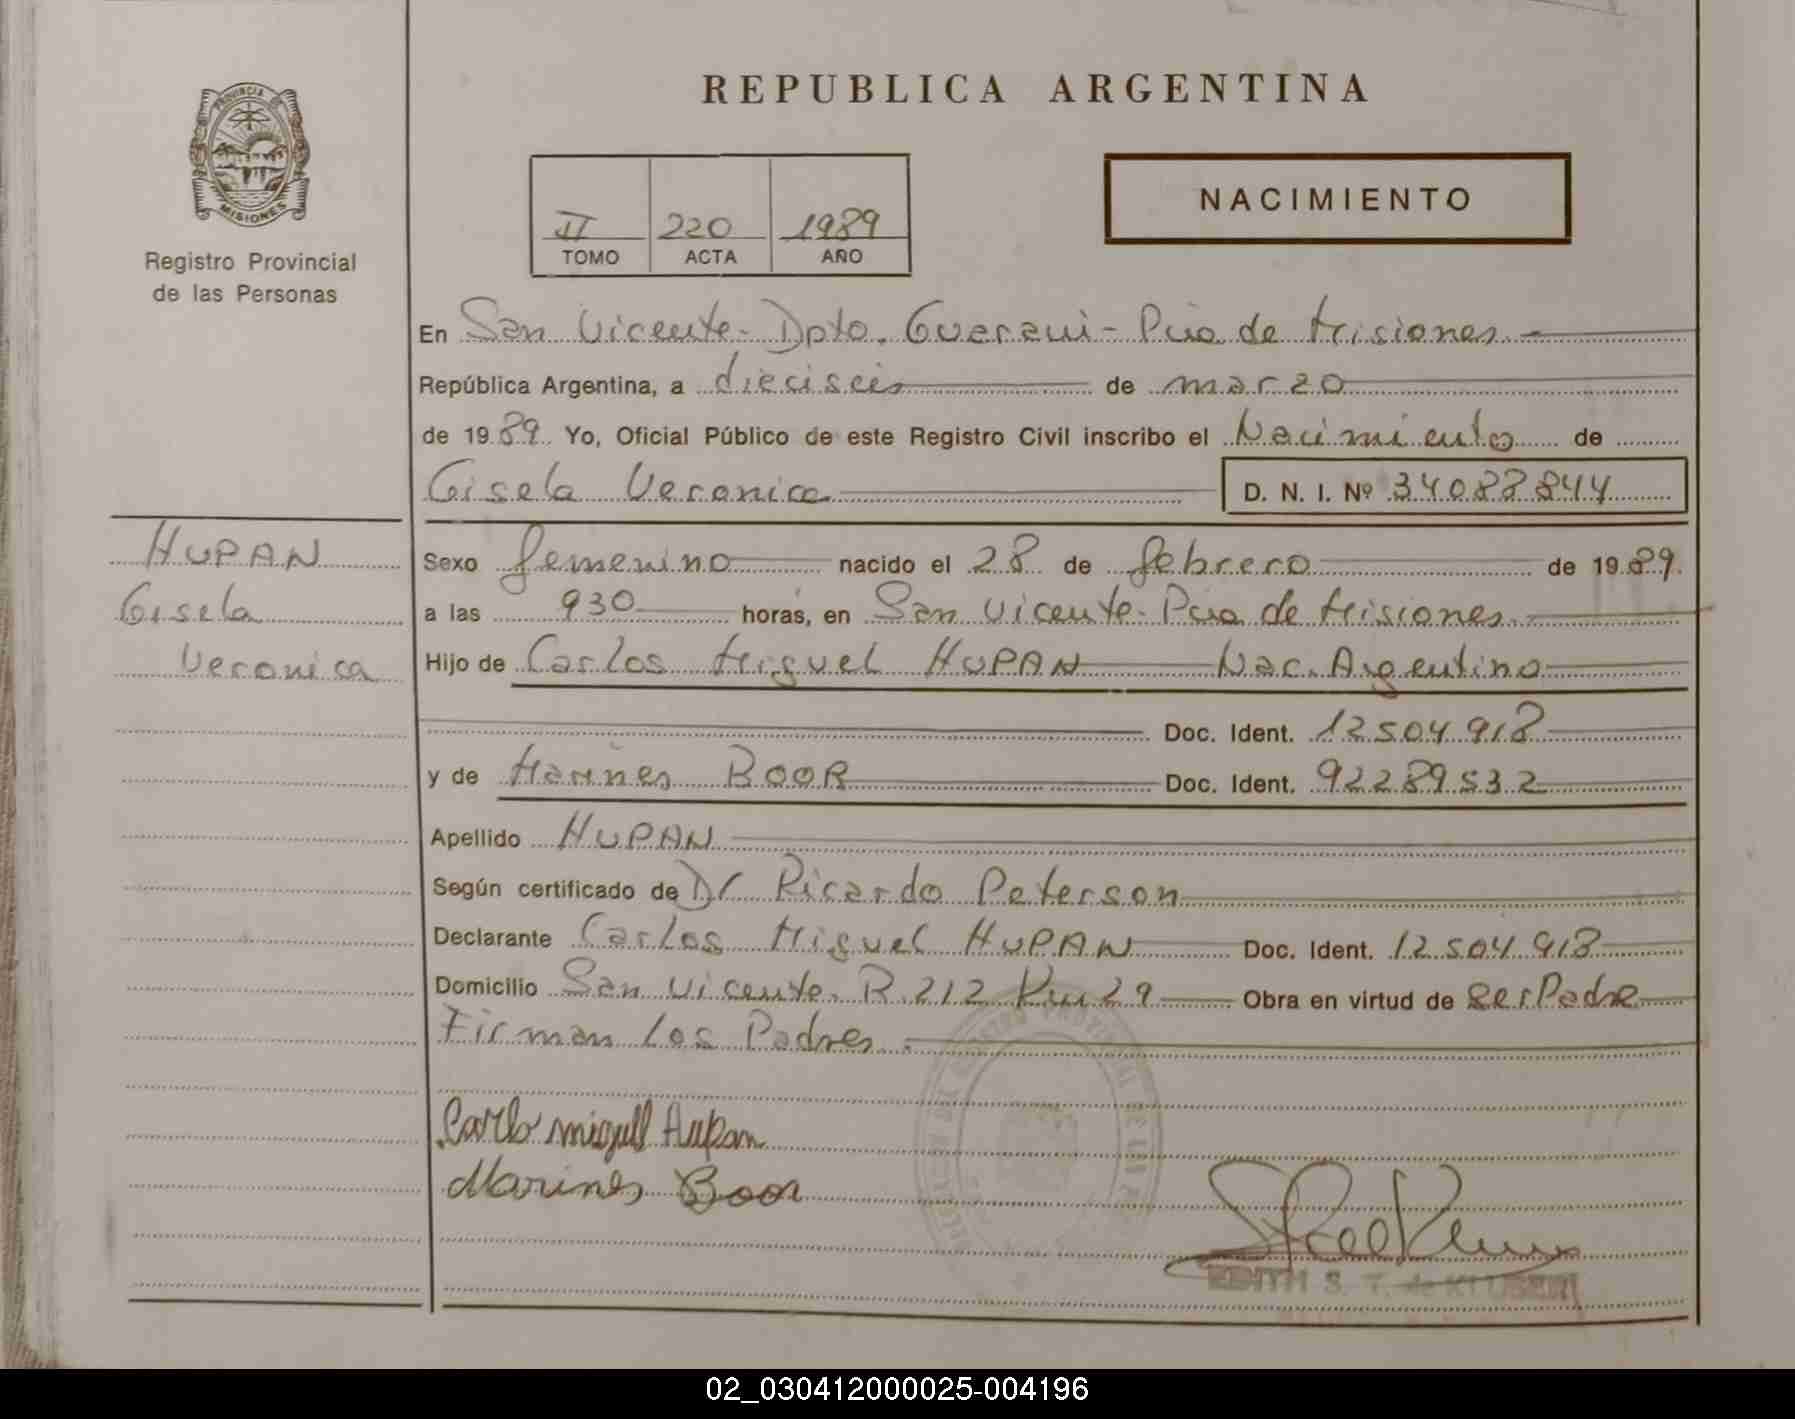 REPUBLICA ARGENTINA
PROVINCIA DE
MISIONES
Registro Provincial
de las Personas
NACIMIENTO
II 220 1989
TOMO ACTA AÑO
En San Vicente - Dpto. Guarani - Pcia de Misiones.
República Argentina, a dieciseis de marzo
de 1989 Yo, Oficial Público de este Registro Civil inscribo el Nacimiento de
Gisela Veronica D. N. I. Nº 34088844
HUPAN
Gisela
Veronica
Sexo femenino nacido el 28 de febrero de 1989.
a las 930 horas, en San Vicente - Pcia de Misiones.
Hijo de Carlos Miguel HUPAN Nac. Argentino
Doc. Ident. 12504918
y de Marines BOOR Doc. Ident. 92289532
Apellido HUPAN
Según certificado de Dr Ricardo Peterson
Declarante Carlos Miguel HUPAN Doc. Ident. 12504918
Domicilio San Vicente. R. 212 Km 29 Obra en virtud de ser Padre
Firman los Padres.
Carlo miguel Hupan
Marines Boor
EDITH S. T. de KLUBER
02_030412000025-004196